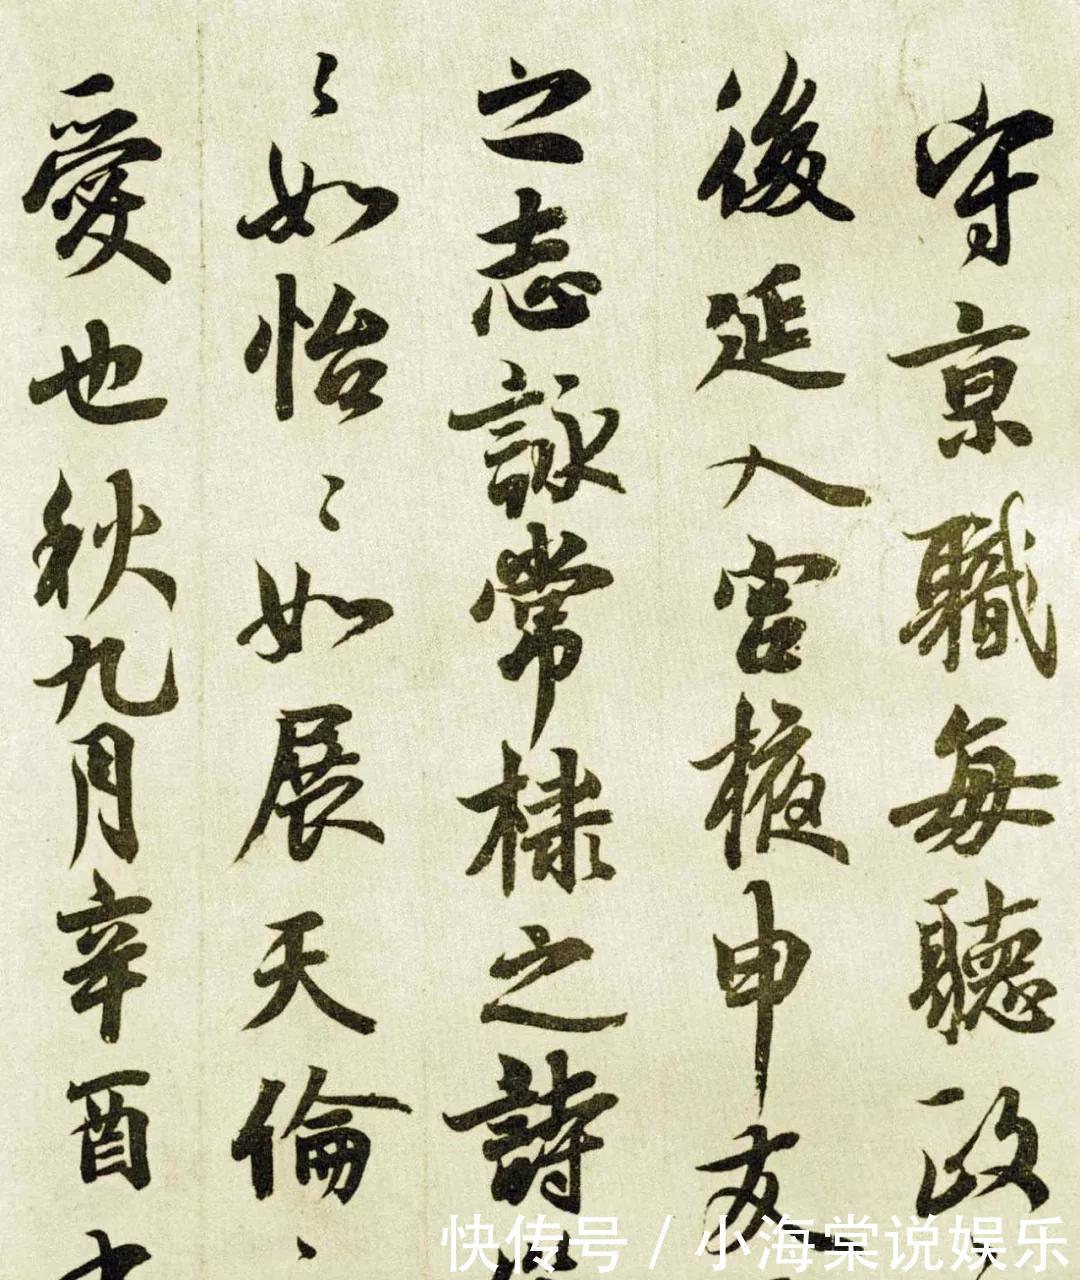 守京職每聽政
後延入宮掖申友
之志詠常棣之詩
〻如怡〻如展天倫
愛也秋九月辛酉
快传号 / 小海棠说娱乐